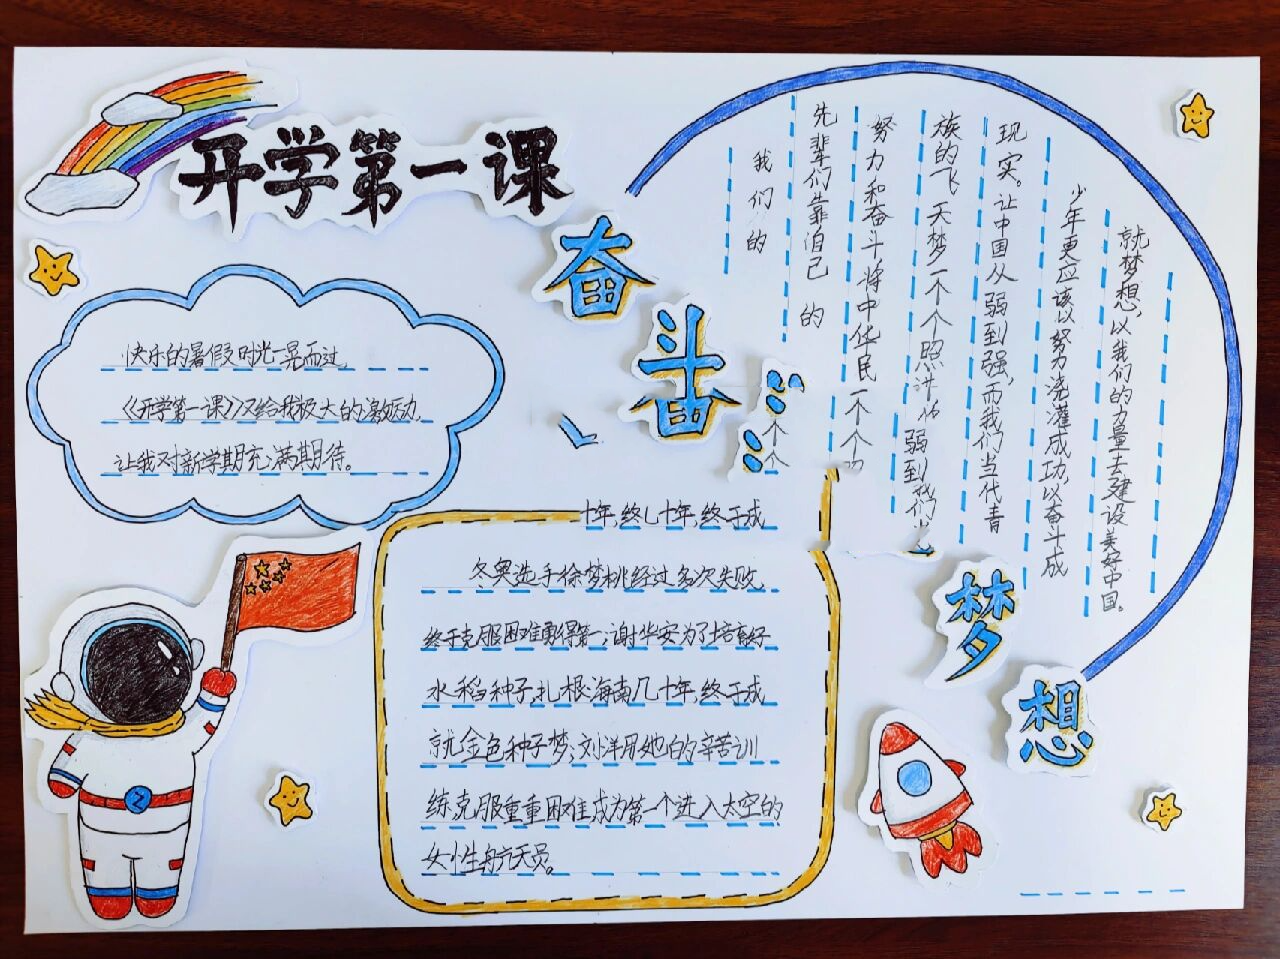 开学第一课
奋
斗
梦
想
快乐的暑假时光一晃而过,
《开学第一课》又给我极大的激励,
让我对新学期充满期待。
十年,终于成
冬奥选手徐梦桃经过多次失败,
终于克服困难勇得第一;谢华安为了培育好
水稻种子,扎根海南几十年,终于成
就金色种子梦;刘洋用她的辛苦训
练,克服重重困难,成为第一个进入太空的
女性航天员。
我们的
先辈们靠自己的
个个
努力和奋斗,将中华民一个个
族的飞天梦一个个照进
弱到
现实。让中国从弱到强,而我们当代青
少年更应该以努力浇灌成功,以奋斗成
就梦想,以我们的力量去建设美好中国。